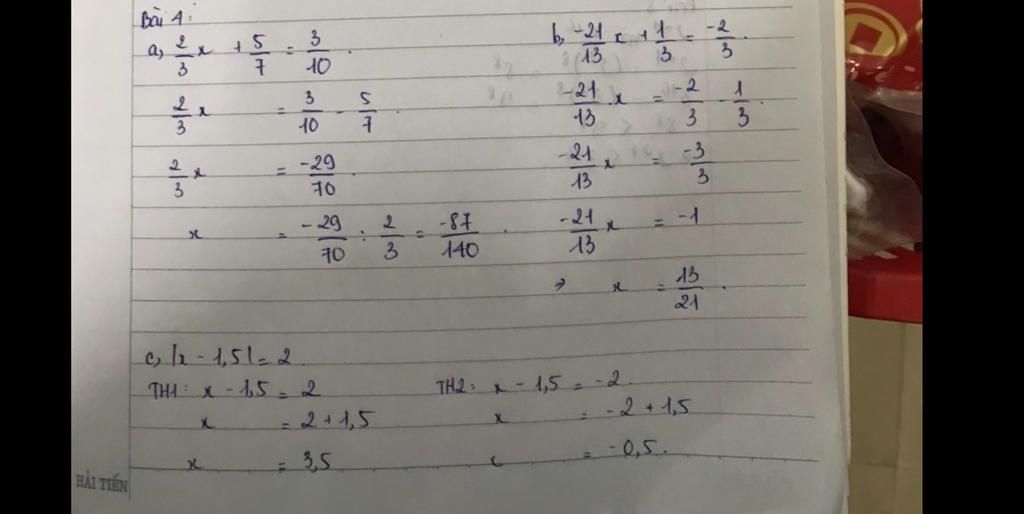 Bài 4:
a, 2/3 x + 5/7 = 3/10.
2/3 x = 3/10 - 5/7.
2/3 x = -29/70.
x = -29/70 : 2/3 = -87/140.
b, -21/13 x + 1/3 = -2/3.
-21/13 . x = -2/3 - 1/3.
-21/13 x = -3/3
-21/13 x = -1
⇒ x = 13/21.
c, |x - 1,5| = 2.
TH1: x - 1,5 = 2
x = 2 + 1,5
x = 3,5
TH2: x - 1,5 = -2.
x = -2 + 1,5
x = -0,5.
HẢI TIẾN